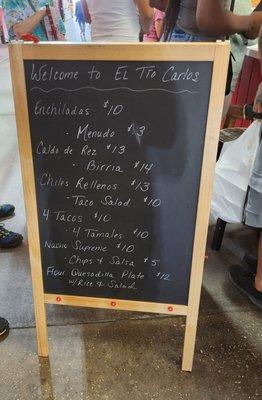 Welcome to El Tío Carlos
Enchiladas $10
· Menudo $13
Caldo de Rez $13
· Birria $14
Chiles Rellenos $13
· Taco Salad $10
4 Tacos $10
· 4 Tamales $10
Nacho Supreme $10
· Chips & Salsa $5
Flour Quesadilla Plate $12
w/Rice & Salad